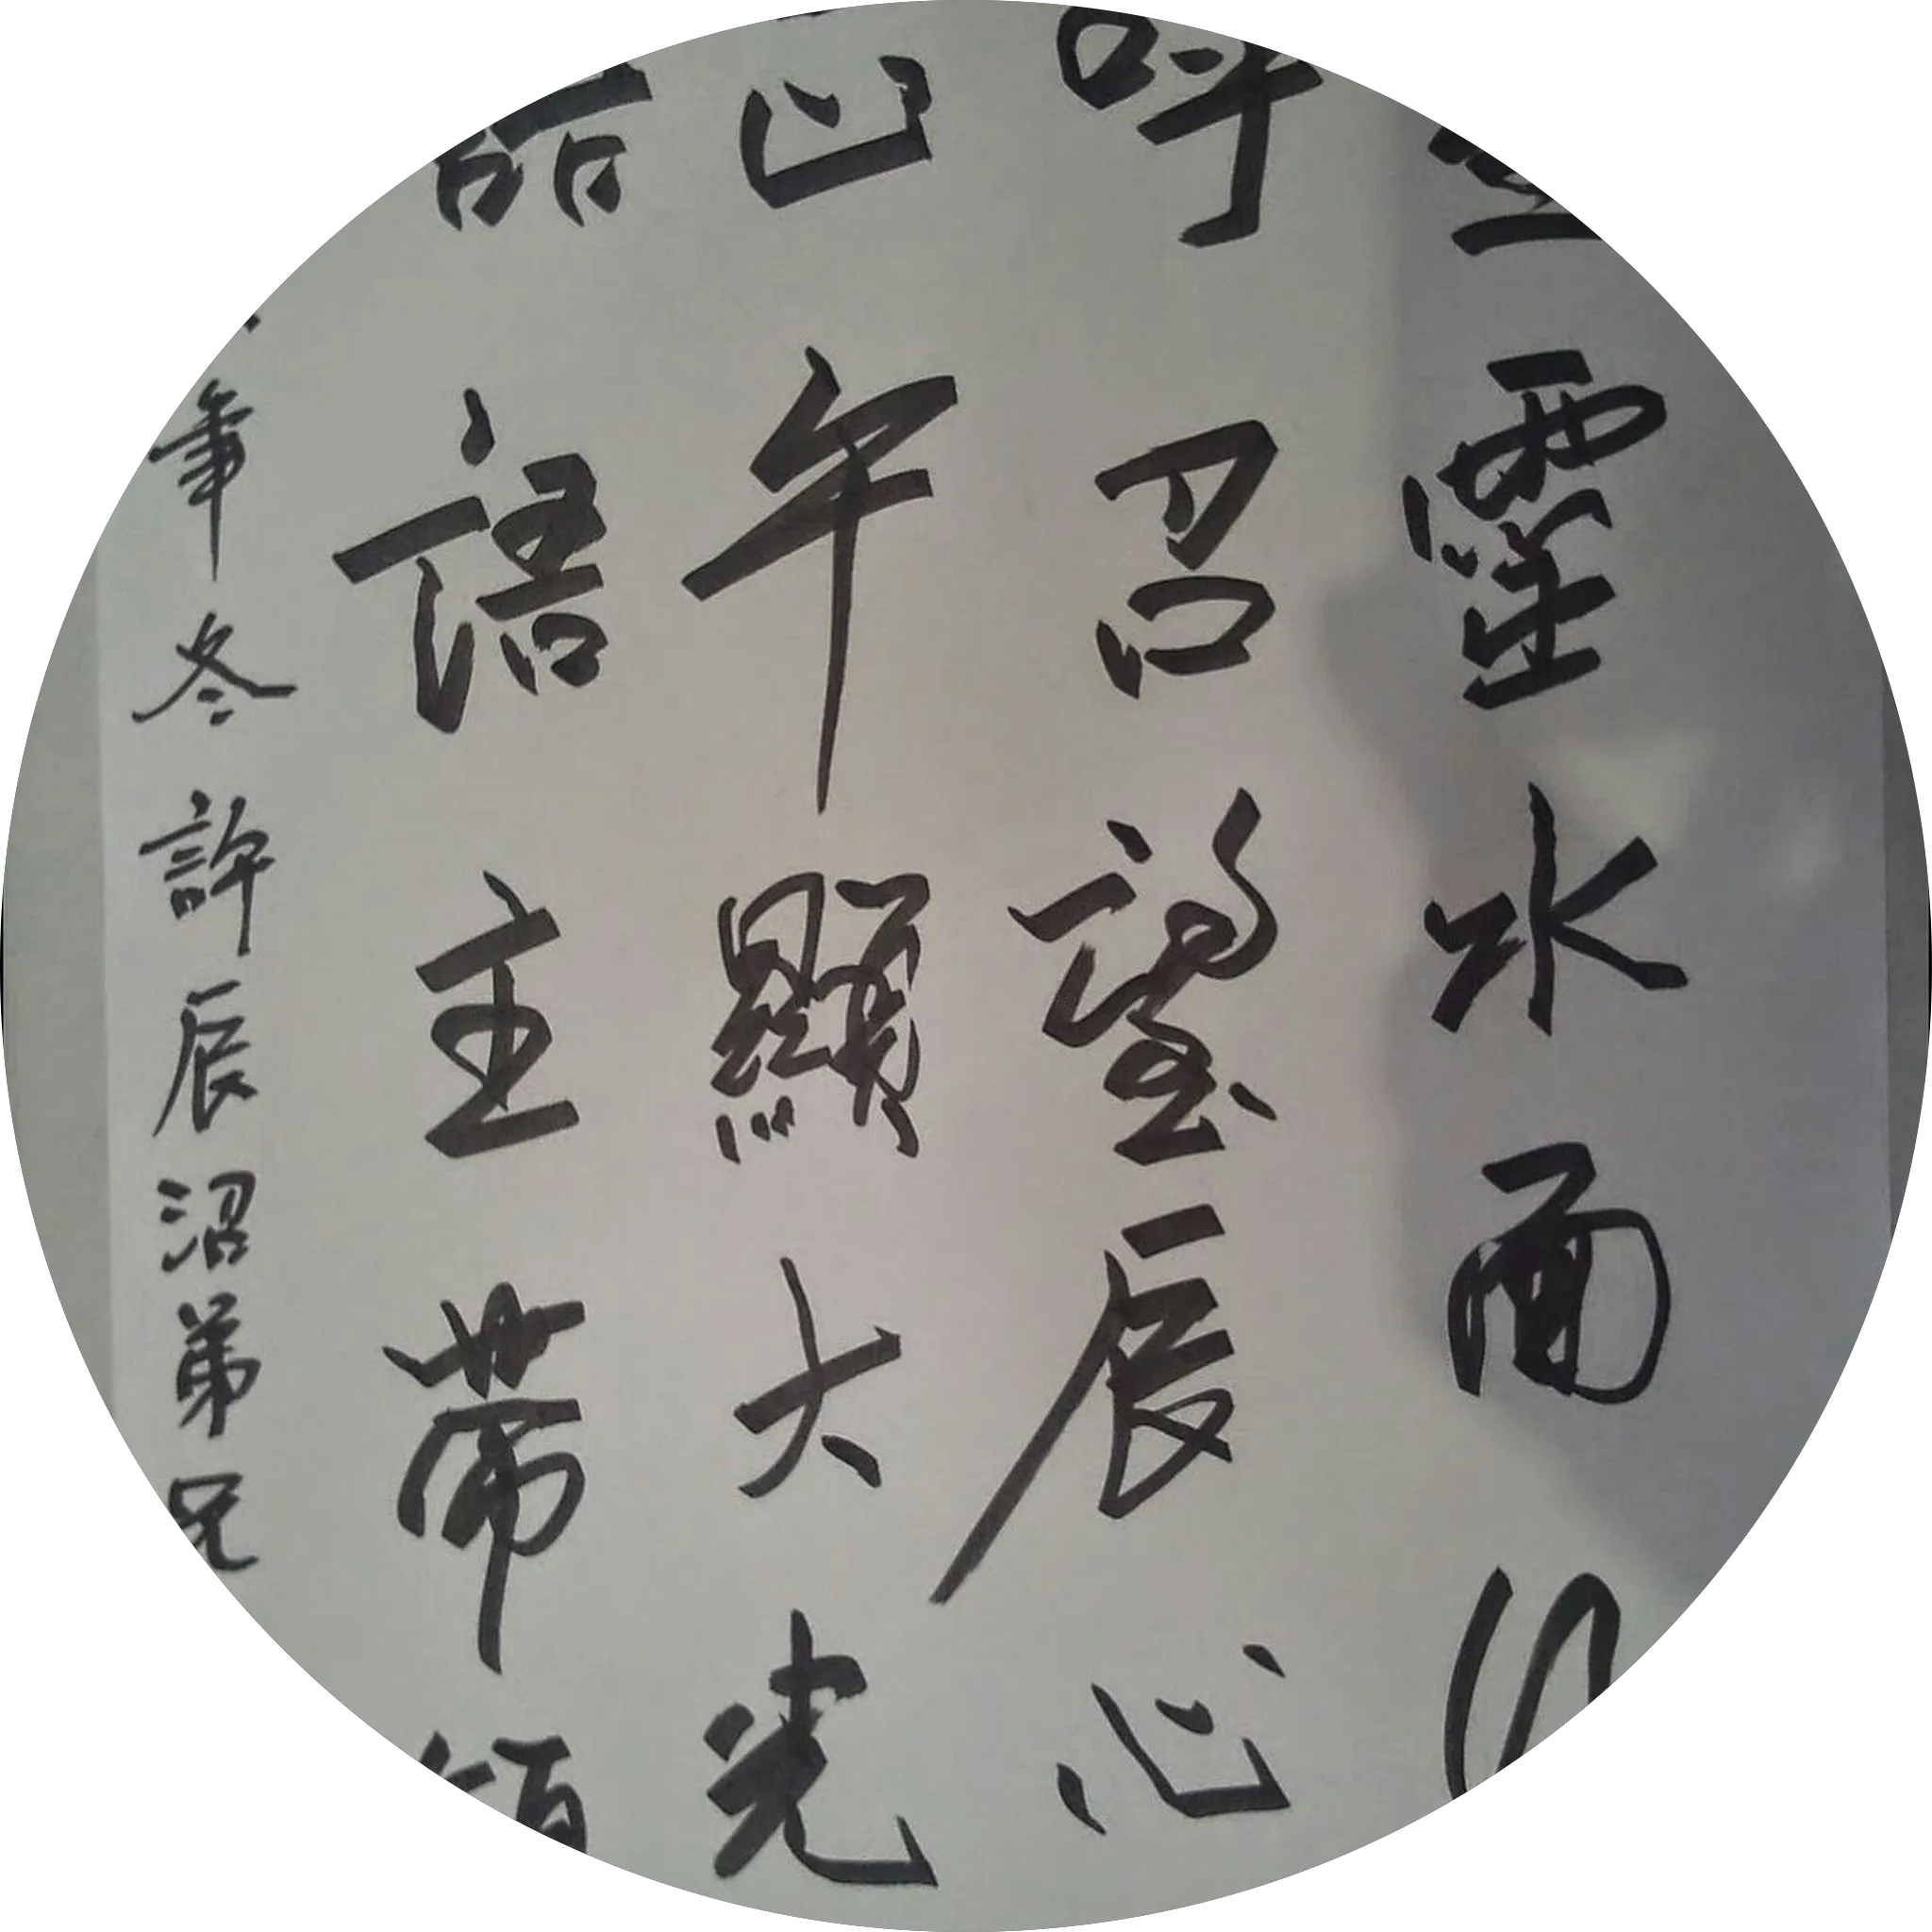 靈水面
呼召望辰心
山午顯大光
語主帶領
年冬許辰沼弟兄